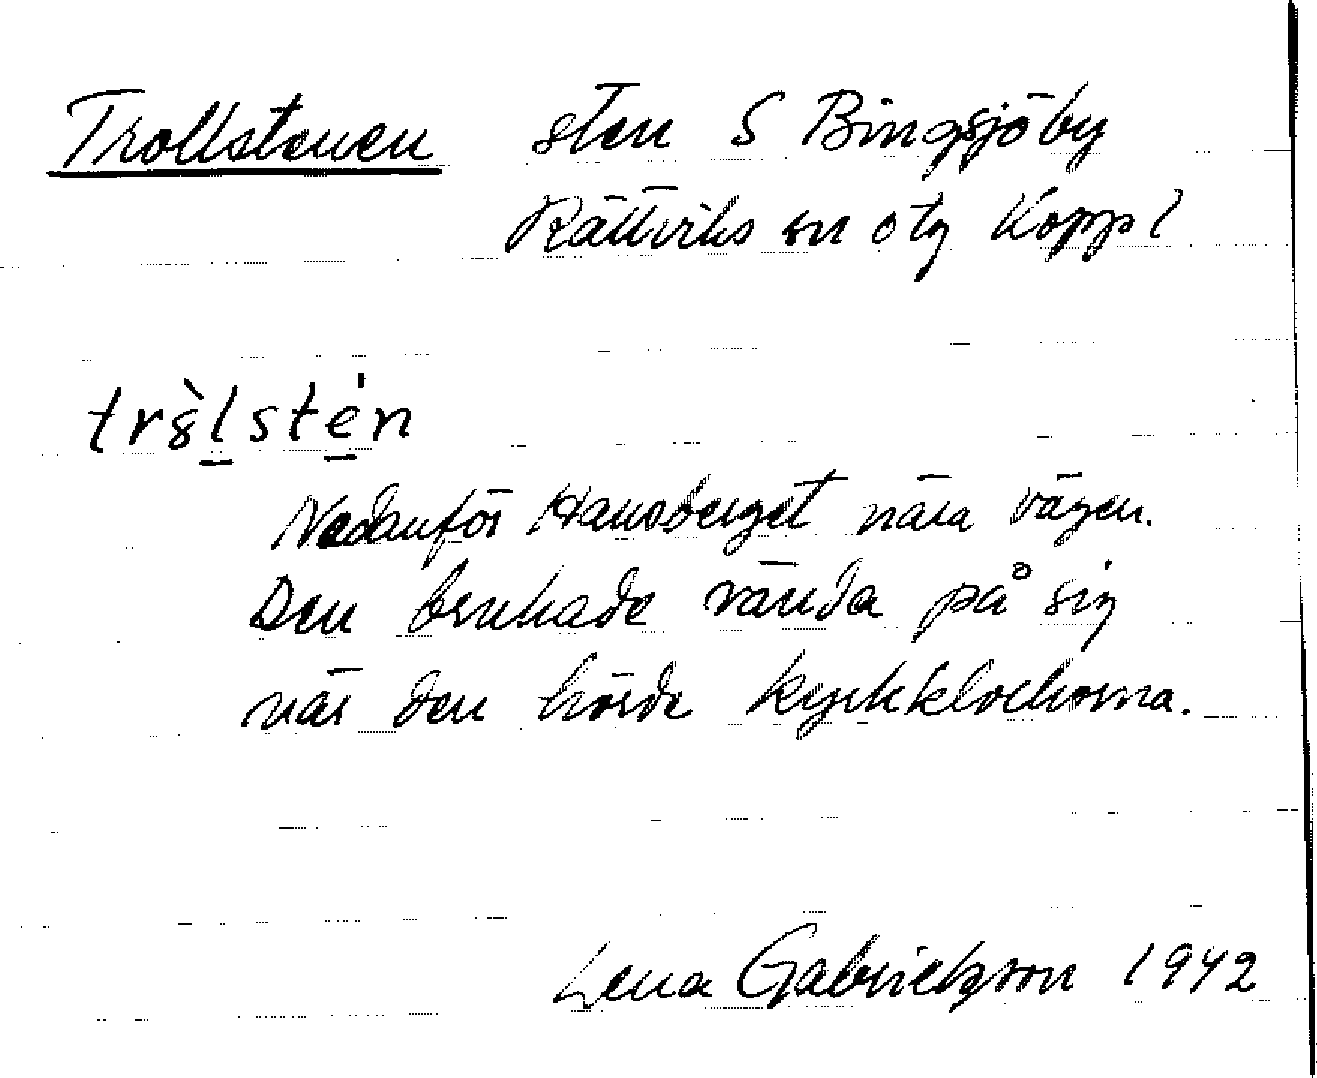 Trollstenen sten S Bingsjöby
Rättviks sn o tg Koppl
trȣ̀lsté̱n
Nedanför Hansberget nära vägen.
Den brukade vända på sig
när den hörde kyrkklockorna.
Lena Gabrielsson 1942